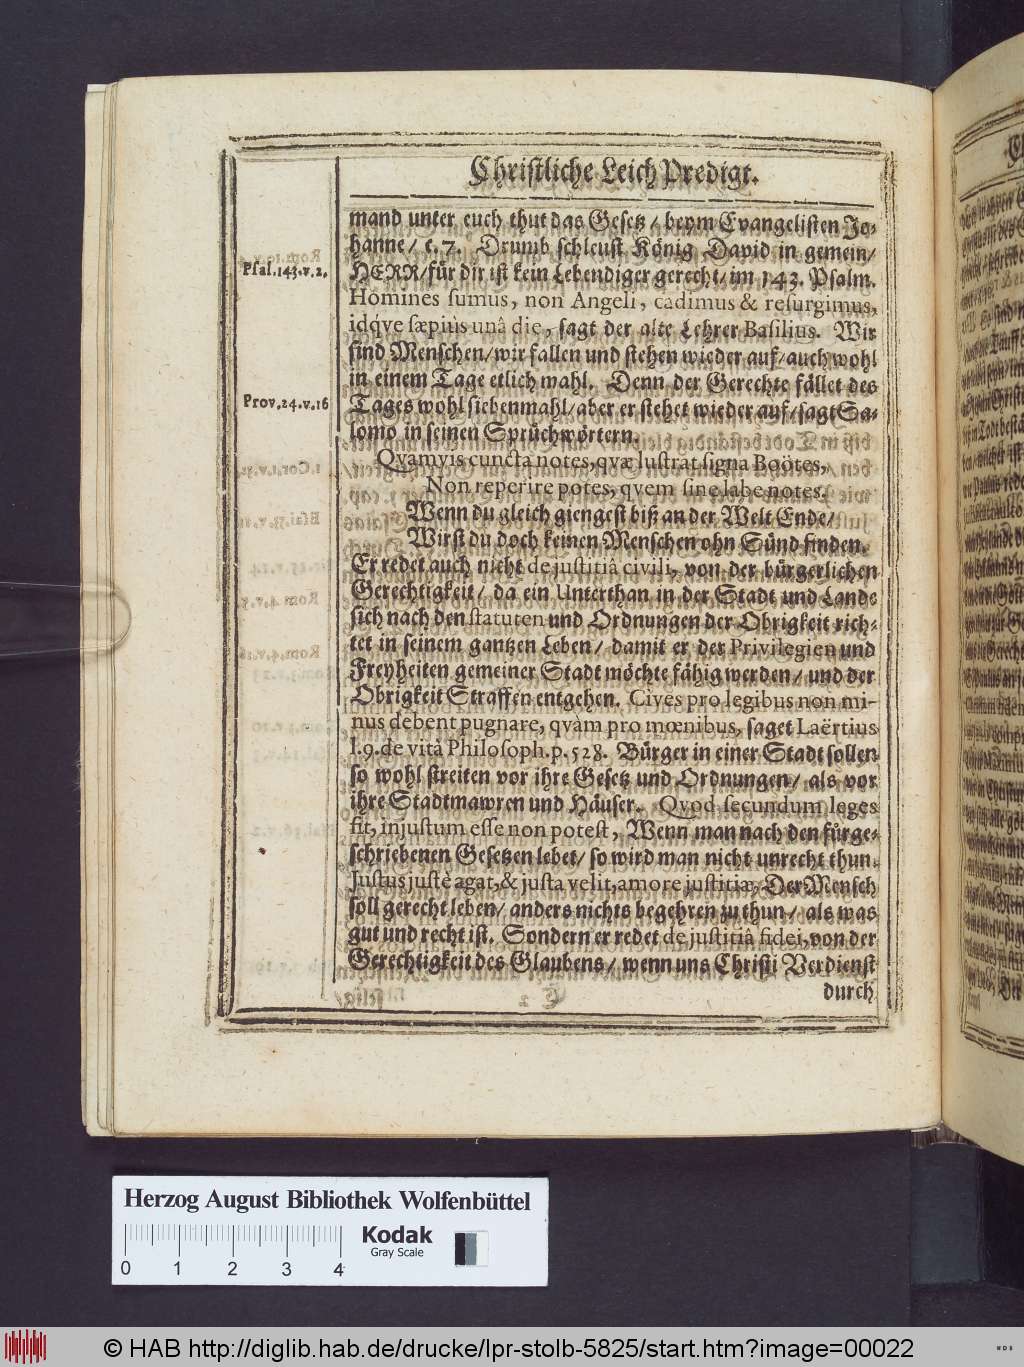 Christliche Leich Predigt.
mand unter euch thut das Gesetz / beym Evangelisten Jo-
hanne / c. 7. Drumb schleust König David in gemein /
Psal.143.v.2.
HERR / für dir ist kein Lebendiger gerecht / im 143. Psalm.
Homines sumus, non Angeli, cadimus & resurgimus,
idqve sæpiùs unâ die, sagt der alte Lehrer Basilius. Wir
sind Menschen / wir fallen und stehen wieder auf / auch wohl
in einem Tage etlich mahl. Denn der Gerechte fället des
Prov.24.v.16
Tages wohl siebenmahl / aber er stehet wieder auf / sagt Sa-
lomo in seinen Sprüchwörtern.
Qvamvis cuncta notes, qvæ lustrat signa Boötes,
Non reperire potes, qvem sine labe notes.
Wenn du gleich giengest biß an der Welt Ende /
Wirst du doch keinen Menschen ohn Sünd finden.
Er redet auch nicht de justitiâ civili, von der bürgerlichen
Gerechtigkeit / da ein Unterthan in der Stadt und Lande
sich nach den statuten und Ordnungen der Obrigkeit rich-
tet in seinem gantzen Leben / damit er der Privilegien und
Freyheiten gemeiner Stadt möchte fähig werden / und der
Obrigkeit Straffen entgehen. Cives pro legibus non mi-
nus debent pugnare, qvàm pro mœnibus, saget Laërtius
l.9. de vitâ Philosoph. p. 528. Bürger in einer Stadt sollen
so wohl streiten vor ihre Gesetz und Ordnungen / als vor
ihre Stadtmawren und Häuser. Qvod secundum leges
fit, injustum esse non potest, Wenn man nach den fürge-
schriebenen Gesetzen lebet / so wird man nicht unrecht thun.
Justus justè agat, & justa velit, amore justitiæ, Der Mensch
soll gerecht leben / anders nichts begehren zu thun / als was
gut und recht ist. Sondern er redet de justitiâ fidei, von der
Gerechtigkeit des Glaubens / wenn uns Christi Verdienst
durch
Herzog August Bibliothek Wolfenbüttel
Kodak
Gray Scale
0 1 2 3 4
© HAB http://diglib.hab.de/drucke/lpr-stolb-5825/start.htm?image=00022